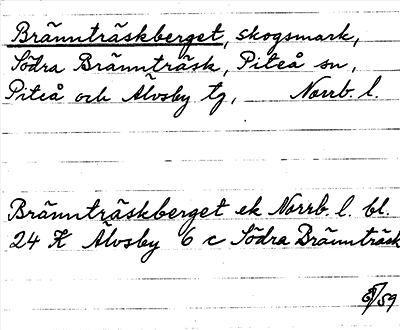 Brännträskberget, skogsmark,
Södra Brännträsk, Piteå sn,
Piteå och Älvsby tg, Norrb. l.
Brännträskberget ek Norrb. l. bl.
24 K Älvsby 6 c Södra Brännträsk
/59